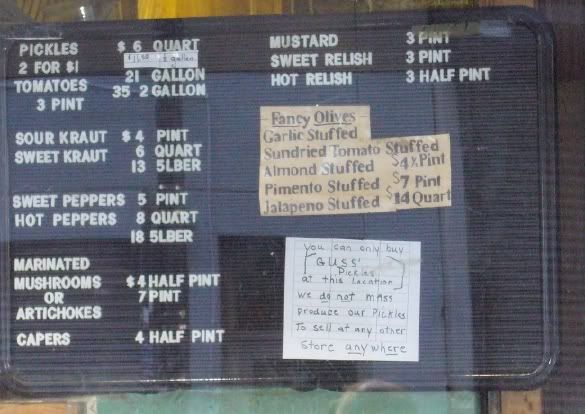 PICKLES $ 6 QUART
$11.50 ½ gallon
2 FOR $1 21 GALLON
TOMATOES 35 2 GALLON
3 PINT
SOUR KRAUT $ 4 PINT
SWEET KRAUT 6 QUART
13 5LBER
SWEET PEPPERS 5 PINT
HOT PEPPERS 8 QUART
18 5LBER
MARINATED
MUSHROOMS $ 4 HALF PINT
OR 7 PINT
ARTICHOKES
CAPERS 4 HALF PINT
MUSTARD 3 PINT
SWEET RELISH 3 PINT
HOT RELISH 3 HALF PINT
Fancy Olives
Garlic Stuffed
Sundried Tomato Stuffed
Almond Stuffed $4 ½ Pint
Pimento Stuffed $7 Pint
Jalapeno Stuffed $14 Quart
You can only buy
[GUSS'
Pickles]
at this Location
We do not mass
produce our Pickles
To sell at any other
Store anywhere